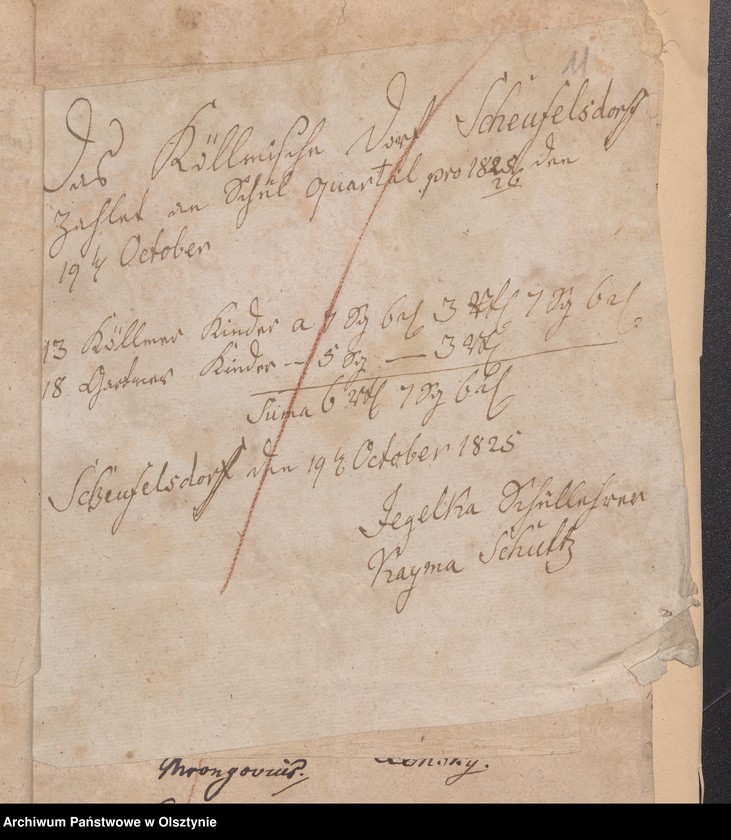 11
Das Köllmische Dorf Scheufelsdorff
Zahlet an Schul Quartal pro 1825/26 den
19 t October
13 Köllmer Kinder a 7 Sg 6 ₰ 3 Rtl 7 Sg 6 ₰
18 Gartner Kinder — 5 Sg — 3 Rtl
Suma 6 Rtl 7 Sg 6 ₰
Scheufelsdorff den 19 t October 1825
Jegelka Schullehrer
Kayma Schultz
Mrongovius.
Archiwum Państwowe w Olsztynie